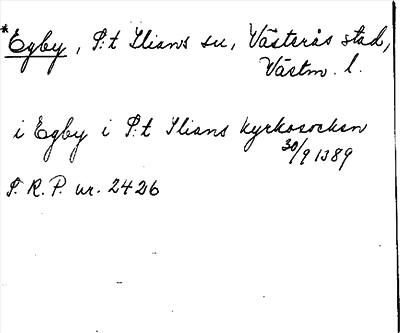 *Egby, S:t Ilians sn, Västerås stad,
Västm. l.
i Egby i S:t Ilians kyrkosocken
30/9 1389
S.R.P. nr. 2426